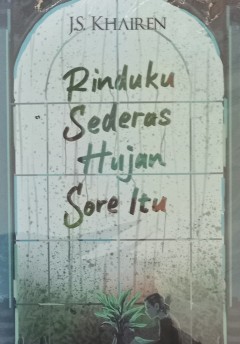 J.S. KHAIREN
Rinduku
Sederas
Hujan
Sore Itu